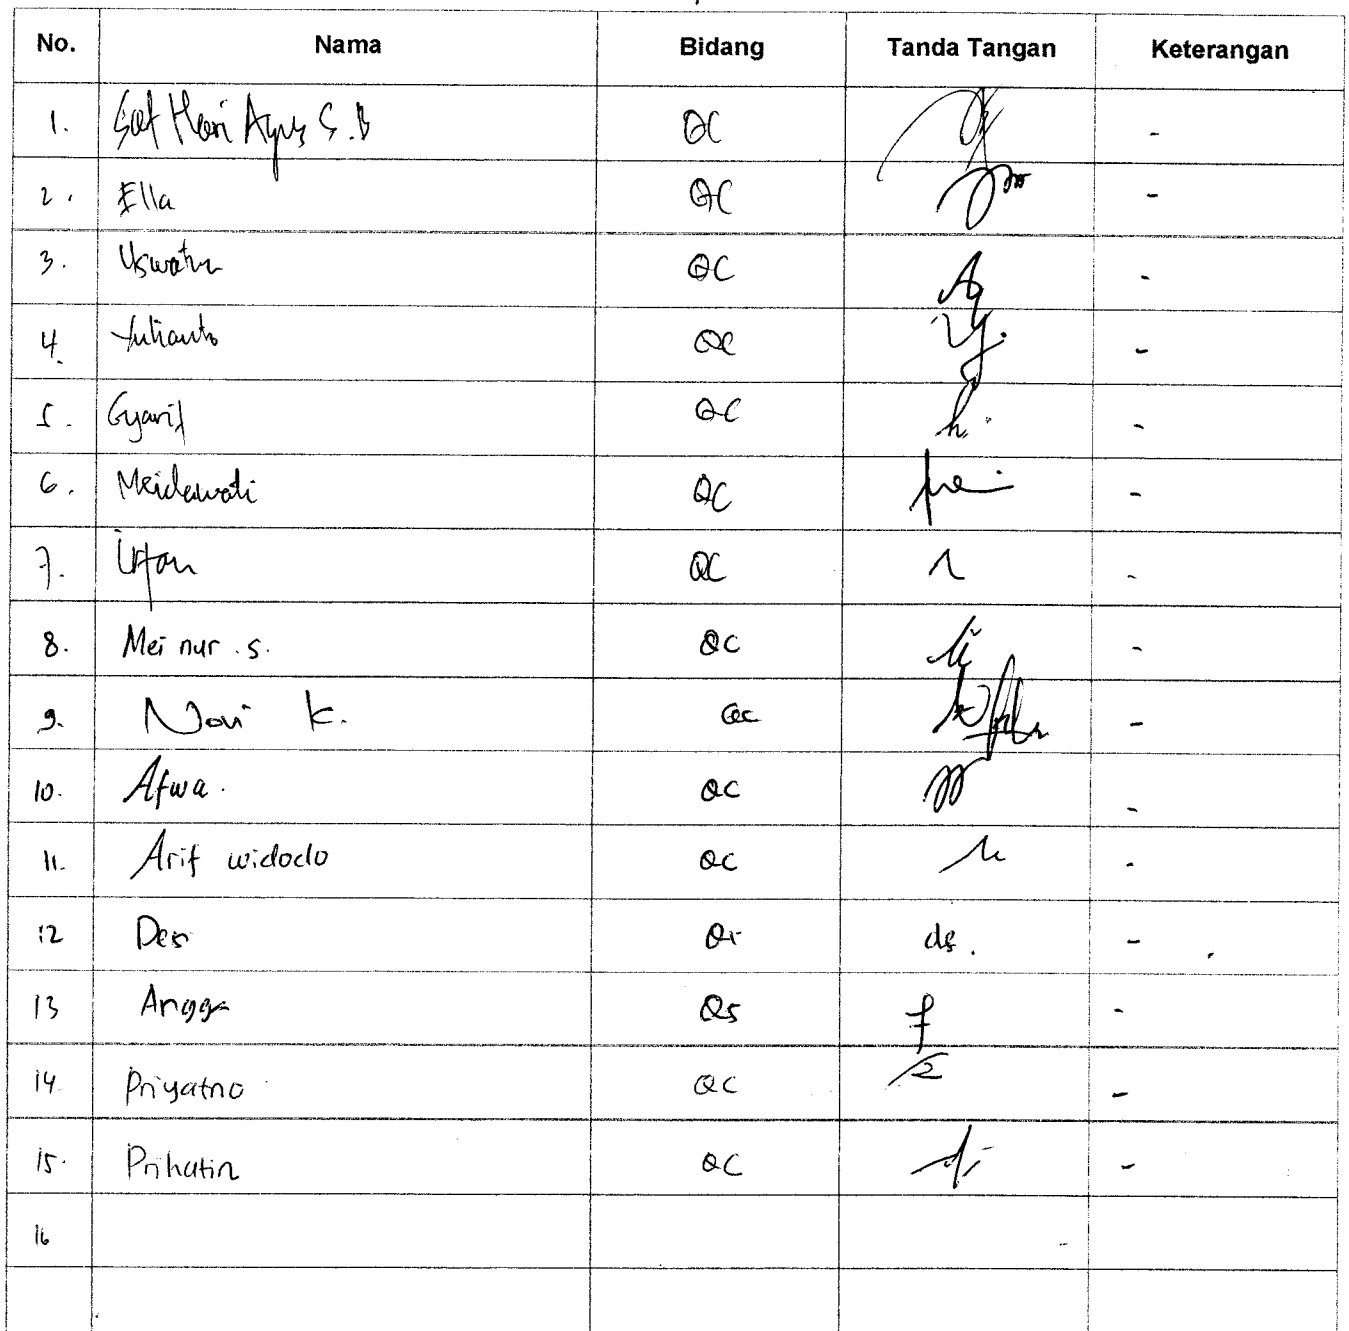 No. Nama Bidang Tanda Tangan Keterangan
1. Hari Agus S.B QC -
2. Ella QC -
3. Uswatun QC -
4. Yulianto QC -
5. Syarif QC -
6. Meidawati QC -
7. Irfan QC -
8. Mei nur .s. QC -
9. Novi K. QC -
10. Afwa. QC -
11. Arif widodo QC -
12 -
13 Angga -
14. Priyatno QC -
15. Prihatin QC -
16